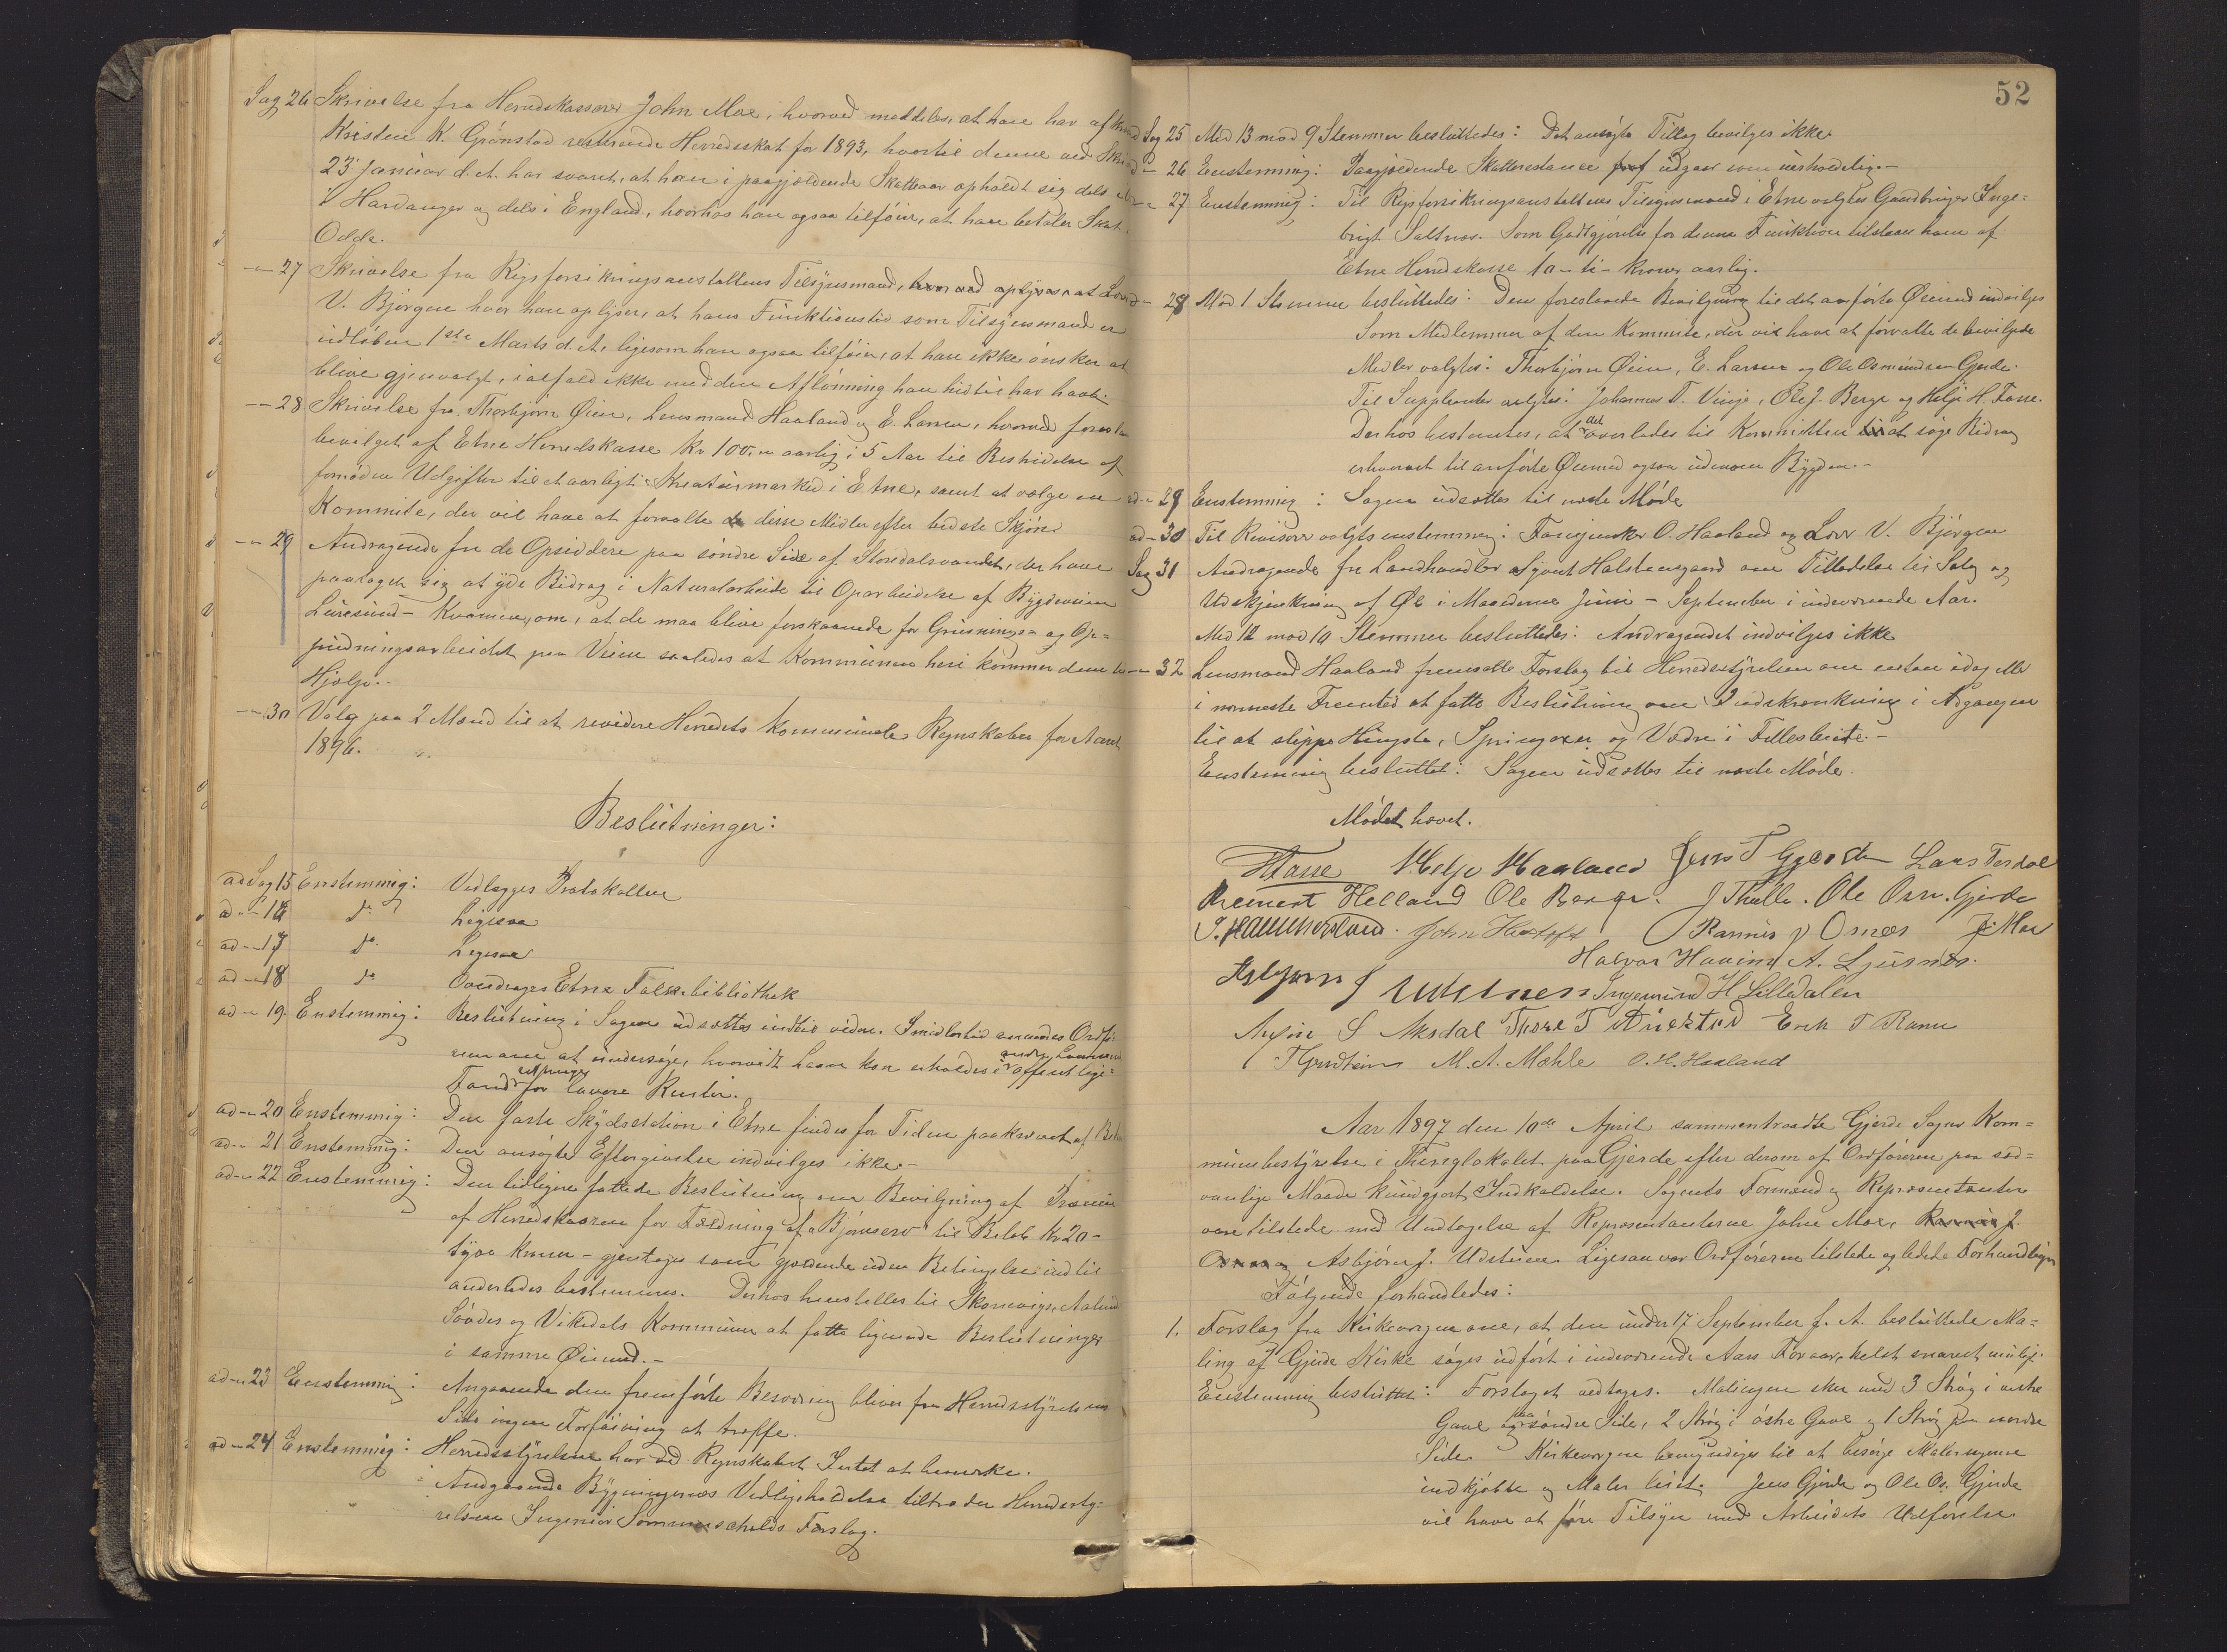 Sag 26 Skrivelse fra Herredskasserer John Moe, hvorved meddeles, at han har afkrævet
Kristen K. Grønstad resterende Herredsskat for 1893, hvortil denne ved Skriv
23 Januar d. A. har svaret, at han i paagjældende Skatteaar opholdt sig dels
i Hardanger og dels i England, hvorhos han ogsaa tilføier, at han betaler Skat
Odda.
-"- 27 Skrivelse fra Rigsforsikringsanstaltens Tilsynsmand,
V. Bjørgen hvor han oplyser, at hans Funktionstid som Tilsynsmand er
udløben 1ste Marts d. A. ligesom han ogsaa tilføier, at han ikke ønsker at
blive gjenvalgt, ialfald ikke med den Aflønning han hidtil har havt.
-"- 28 Skrivelse fra Thorbjørn Øien, Lensmand Haaland og E. Larsen, hvorved
bevilget af Etne Herredskasse Kr 100,00 aarlig i 5 Aar til Bestridelse af
fornødne Udgifter til et aarligt Kreaturmarked i Etne, samt at vælge en
Kommite, der vil have at forvalte disse Midler efter bedste Skjøn
-"- 29 Andragende fra de Opsiddere paa søndre Side af Stordalsvandet, der have
paataget sig at yde Bidrag i Naturalarbeide til Oparbeidelse af Bygdeveien
Luresund - Kvamen, om, at de maa blive forskaanede for Grusnings- og Op-
rudningsarbeidet paa Veien saaledes at Kommunen heri kommer dem til
Hjælp.
-"- 30 Valg paa 2 Mænd til at revidere Herredets kommunale Regnskaber for Aaret
1896.
Beslutninger:
ad Sag 15 Enstemmig: Vedlægges Protokollen
ad -"- 16 do Ligesaa
ad -"- 17 do Ligesaa
ad -"- 18 do Overdrages Etne Folkebibliothek
ad -"- 19 Enstemmig: Beslutning i Sagen udsættes indtil videre. Imidlertid anmodes Ordfø-
reren om at undersøge, hvorvidt Laan kan erholdes i offentlige
Fond for lavere Renter.
ad -"- 20 Enstemmig: Den faste Skydsstation i Etne findes for Tiden paakrævet af
ad -"- 21 Enstemmig: Den ansøgte Eftergivelse indvilges ikke.-
ad -"- 22 Enstemmig: Den tidligere fattede Beslutning om Bevilgning af Præmie
af Herredskassen for Fældning af "Bjørnerov" til Beløb Kr 20 -
tyve Kroner - gjentages som gjældende uden Betingelse indtil
anderledes bestemmes. Derhos henstilles til Skonevigs,
Søvdes og Vikedals Kommuner at fatte lignende Beslutninger
i samme Øiemed.-
ad -"- 23 Enstemmig: Angaaende den fremførte Besværing bliver fra Herredsstyrelsens
Side ingen Forføining at træffe.
ad -"- 24 Enstemmig: Herredsstyrelsen har ved Regnskabet Intet at bemerke.
Angaaende Bygningernes Vedligeholdelse tiltræder Herredssty-
relsen Ingeniør Sommerschields Forslag.
52
Sag 25 Med 13 mod 9 Stemmer besluttedes: Det ansøgte Tillæg bevilges ikke.
-"- 26 Enstemmig: Paagjældende Skatterestance udgaar som uerholdelig.-
-"- 27 Enstemmig: Til Rigsforsikringsanstaltens Tilsynsmand i Etne valgtes Gaardbruger Inge-
brigt Saltnes. Som Godtgjørelse for denne Funktion tilstaaes ham af
Etne Herredskasse 10 - ti - Kroner aarlig.
-"- 28 Mod 1 Stemme besluttedes: Den foreslaaede Bevilgning til det anførte Øiemed indvilges
Som Medlemmer af den Kommite, der vil have at forvalte de bevilgede
Midler valgtes: Thorbjørn Øien, E. Larsen og Ole Osmundsen Gjerde.
Til Supplenter valgtes: Johannes T. Vinje, Ole J. Berge og Helje H. Fosse.
Derhos bestemtes, at det overlades til Kommitteen at søge Bidrag
erhvervet til anførte Øiemed ogsaa udenom Bygden.-
ad -"- 29 Enstemmig: Sagen udsættes til næste Møde
ad -"- 30 Til Revisorer valgtes enstemmig: Fanejunker O. Haaland og V. Bjørgen
Sag 31 Andragende fra Landhandler Sjovat Halstensgaard om Tilladelse til Salg og
Udskjænkning af Øl i Maanederne Juni - September i indeværende Aar.
Med 12 mod 10 Stemmer besluttedes: Andragendet indvilges ikke
-"- 32 Lensmand Haaland fremsatte Forslag til Herredsstyrelsen om enten idag eller
i nærmeste Fremtid at fatte Beslutning om Indskrænkning i Adgangen
til at slippe Hingste, Springoxer og Vædre i Fællesbeite.-
Enstemmig besluttet: Sagen udsættes til næste Møde.
Mødet hævet.
HFosse Helje Haaland Jens T Gjerde Lars Tesdal
Reinert Helland Ole Berge. J Thulle. Ole Osm. Gjerde
Hammersland. John Hustoft Rasmus J Osnes J. Moe
Halvor Houeim A. Ljusnes.
Asbjørn J Udstuen Ingemund H Lilledalen
S Aksdal Thore T Erik T Ramn
M. A. Mæhle O. H. Haaland
Aar 1897 den 10de April sammentraadte Gjerde Sogns Kom-
munebestyrelse i Thinglokalet paa Gjerde efter derom af Ordføreren paa sæd-
vanlige Maade kundgjort Indkaldelse. Sognets Formænd og Repræsentanter
vare tilstede med Undtagelse af Repræsentanterne John Moe, Rasmus J.
Osnes og Asbjørn J. Udstuen. Ligesaa var Ordføreren tilstede og ledede Forhandlingen
Følgende forhandledes:
1. Forslag fra Kirkevergen om, at den under 17 September f. A. besluttede Ma-
ling af Gjerde Kirke søges udført i indeværende Aars Foraar, helst snarest mulig.
Enstemmig besluttet: Forslaget vedtages. Malingen sker med 3 Strøg i vestre
Gavl og paa søndre Side, 2 Strøg i østre Gavl og 1 Strøg paa nordre
Side. Kirkevergen bemyndiges til at besørge Malersagerne
indkjøbte og Maler leiet. Jens Gjerde og Ole Os. Gjerde
vil have at føre Tilsyn med Arbeidets Udførelse